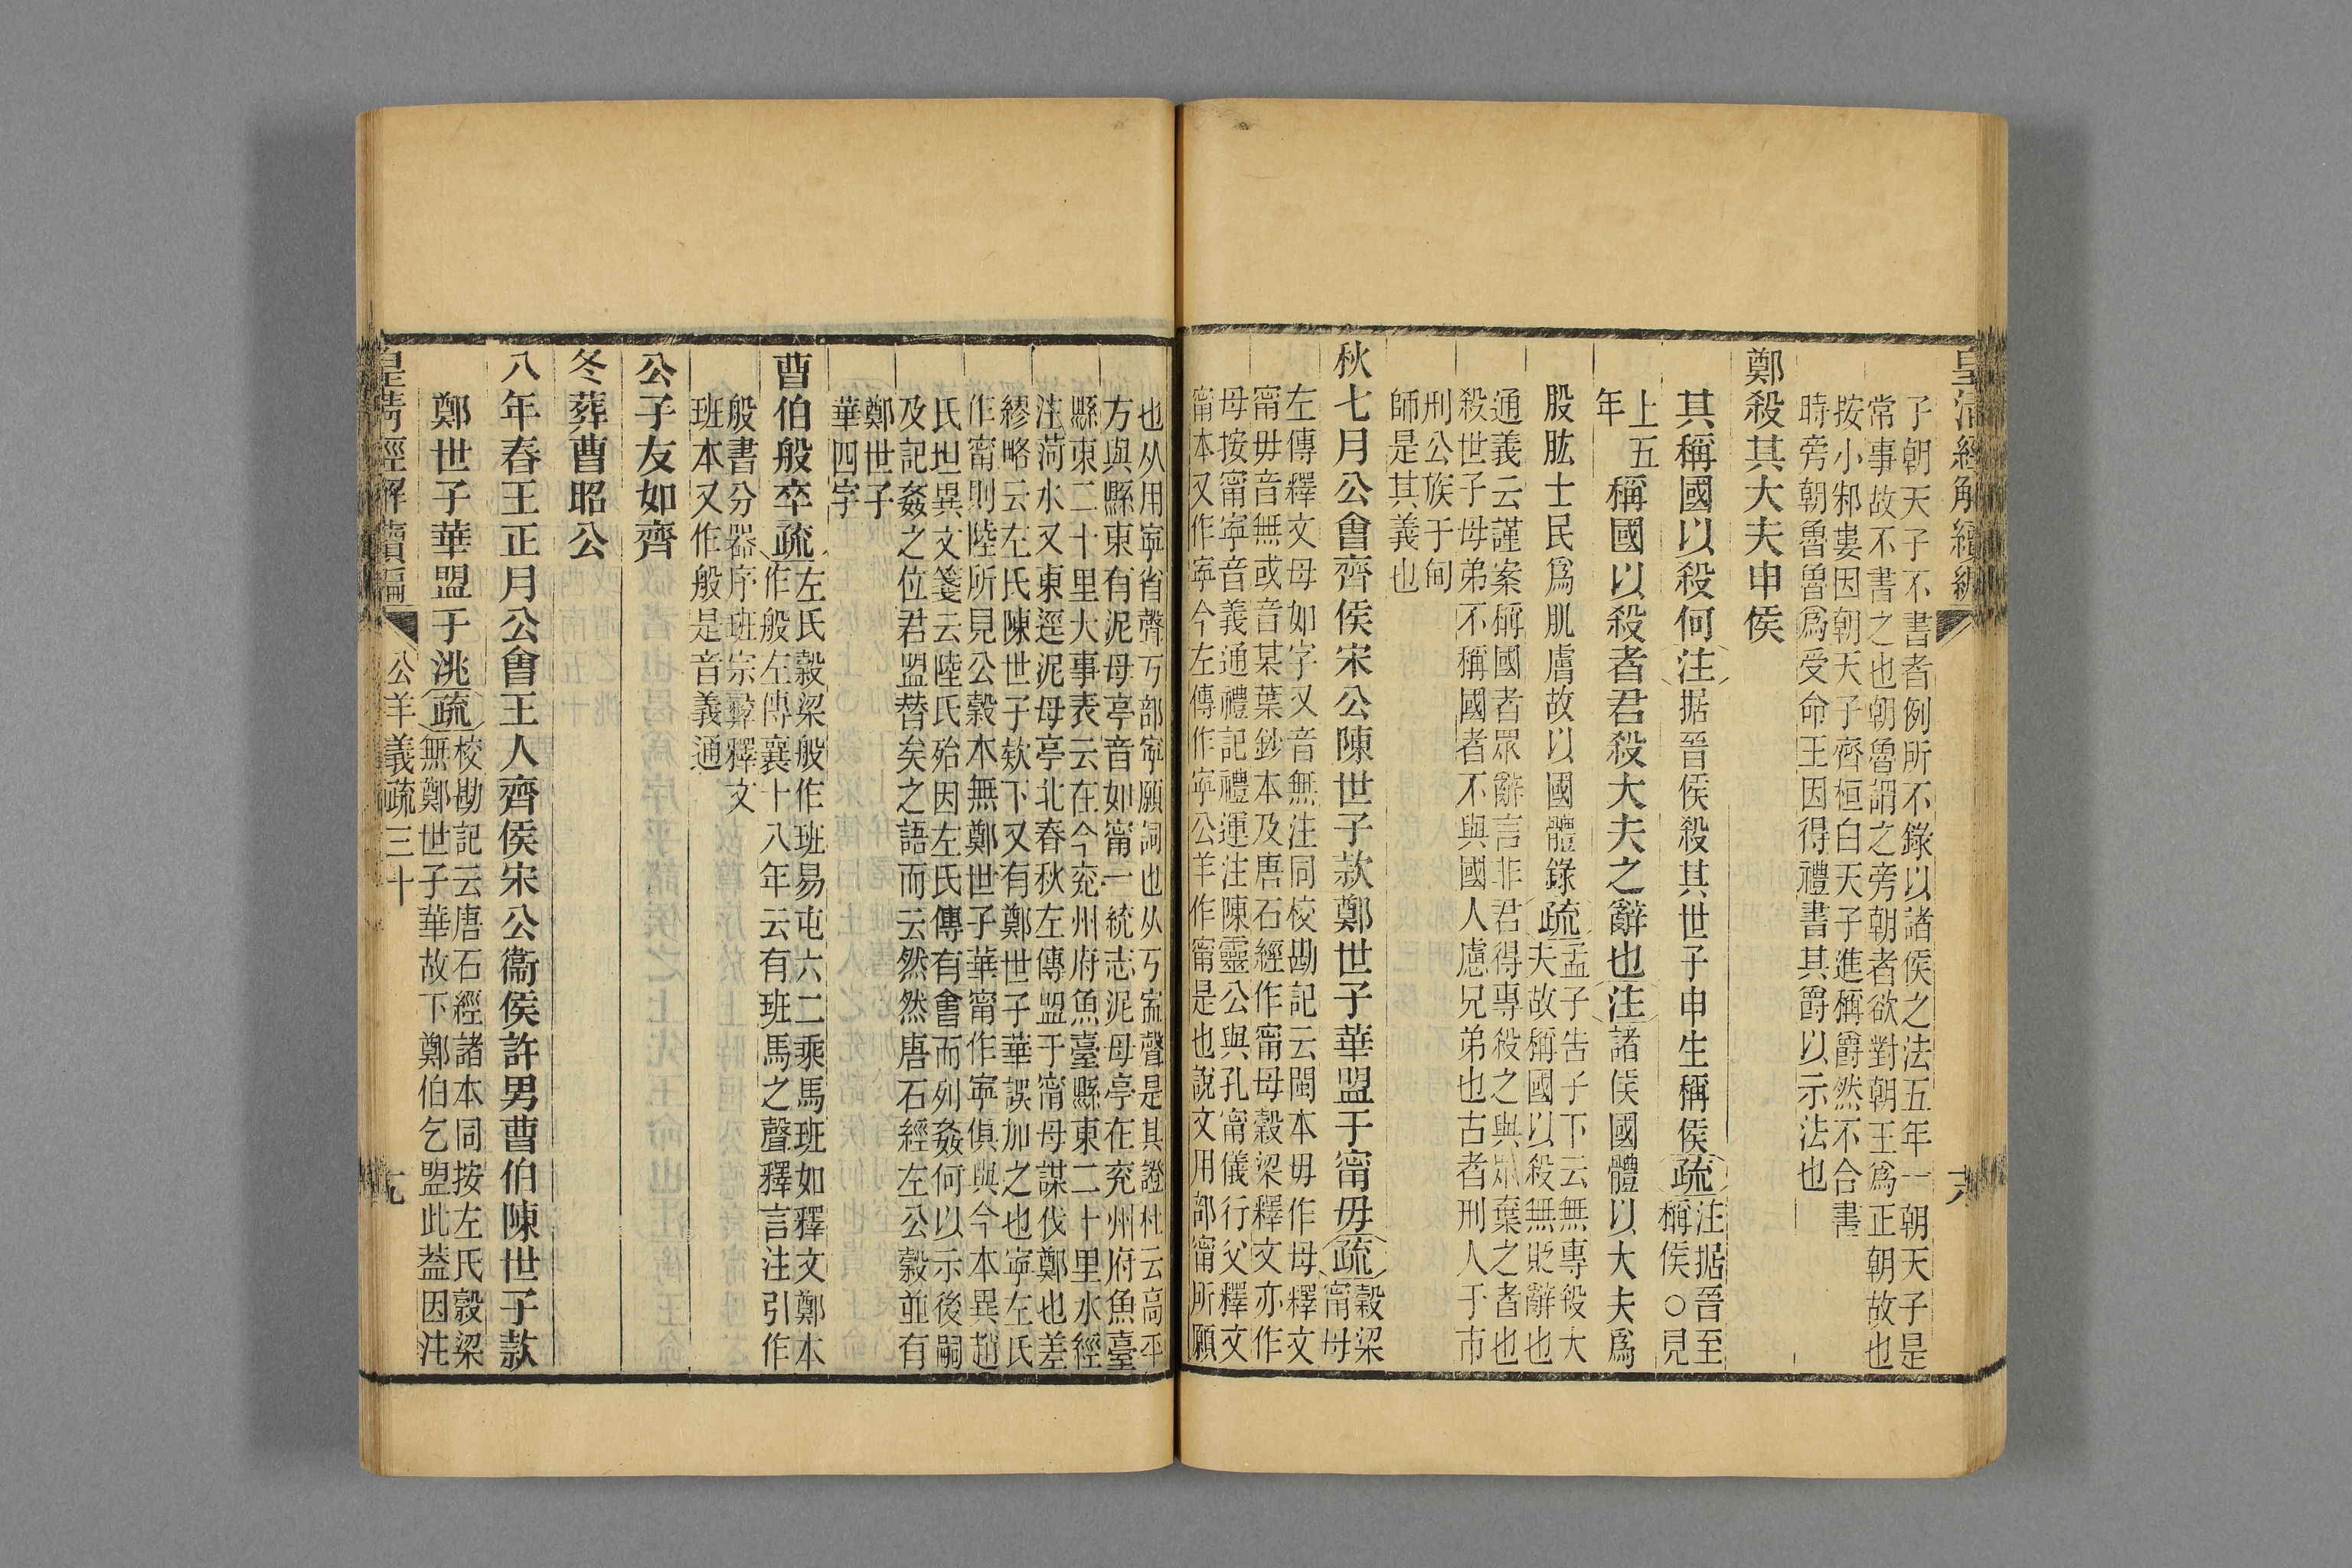 皇清經解續編
六
子朝天子不書者例所不錄以諸侯之法五年一朝天子是
常事故不書之也朝魯謂之旁朝者欲對朝王爲正朝故也
按小邾婁因朝天子齊桓白天子進稱爵然不合書
時旁朝魯魯爲受命王因得禮書其爵以示法也
鄭殺其大夫申侯
其稱國以殺何注据晉侯殺其世子申生稱侯疏注据晉至
稱侯○見
上五
年
稱國以殺者君殺大夫之辭也注諸侯國體以大夫爲
股肱士民爲肌膚故以國體錄疏孟子告子下云無專殺大
夫故稱國以殺無貶辭也
通義云謹案稱國者眾辭言非君得專殺之與眾棄之者也
殺世子母弟不稱國者不與國人慮兄弟也古者刑人于市
刑公族于甸
師是其義也
秋七月公會齊侯宋公陳世子款鄭世子華盟于甯毋疏穀梁
甯母
左傳釋文母如字又音無注同校勘記云閩本毋作母釋文
甯毋音無或音某葉鈔本及唐石經作甯母穀梁釋文亦作
毋按甯寧音義通禮記禮運注陳靈公與孔甯儀行父釋文
甯本又作寧今左傳作寧公羊作甯是也說文用部甯所願
也从用寧省聲丂部寧願詞也从丂寍聲是其證杜云高平
方與縣東有泥母亭音如甯一統志泥母亭在兖州府魚臺
縣東二十里大事表云在今兖州府魚臺縣東二十里水經
注菏水又東逕泥母亭北春秋左傳盟于甯母謀伐鄭也差
繆略云左氏陳世子欵下又有鄭世子華誤加之也寧左氏
作甯則陸所見公穀本無鄭世子華甯作寧俱與今本異趙
氏坦異文箋云陸氏殆因左氏傳有會而列姦何以示後嗣
及記姦之位君盟替矣之語而云然然唐石經左公穀並有
鄭世子
華四字
曹伯般卒疏左氏穀梁般作班易屯六二乘馬班如釋文鄭本
作般左傳襄十八年云有班馬之聲釋言注引作
般書分器序班宗彝釋文
班本又作般是音義通
公子友如齊
冬葬曹昭公
八年春王正月公會王人齊侯宋公衞侯許男曹伯陳世子款
鄭世子華盟于洮疏校勘記云唐石經諸本同按左氏穀梁
無鄭世子華故下鄭伯乞盟此葢因注
皇清經解續編
公羊義疏三十
九